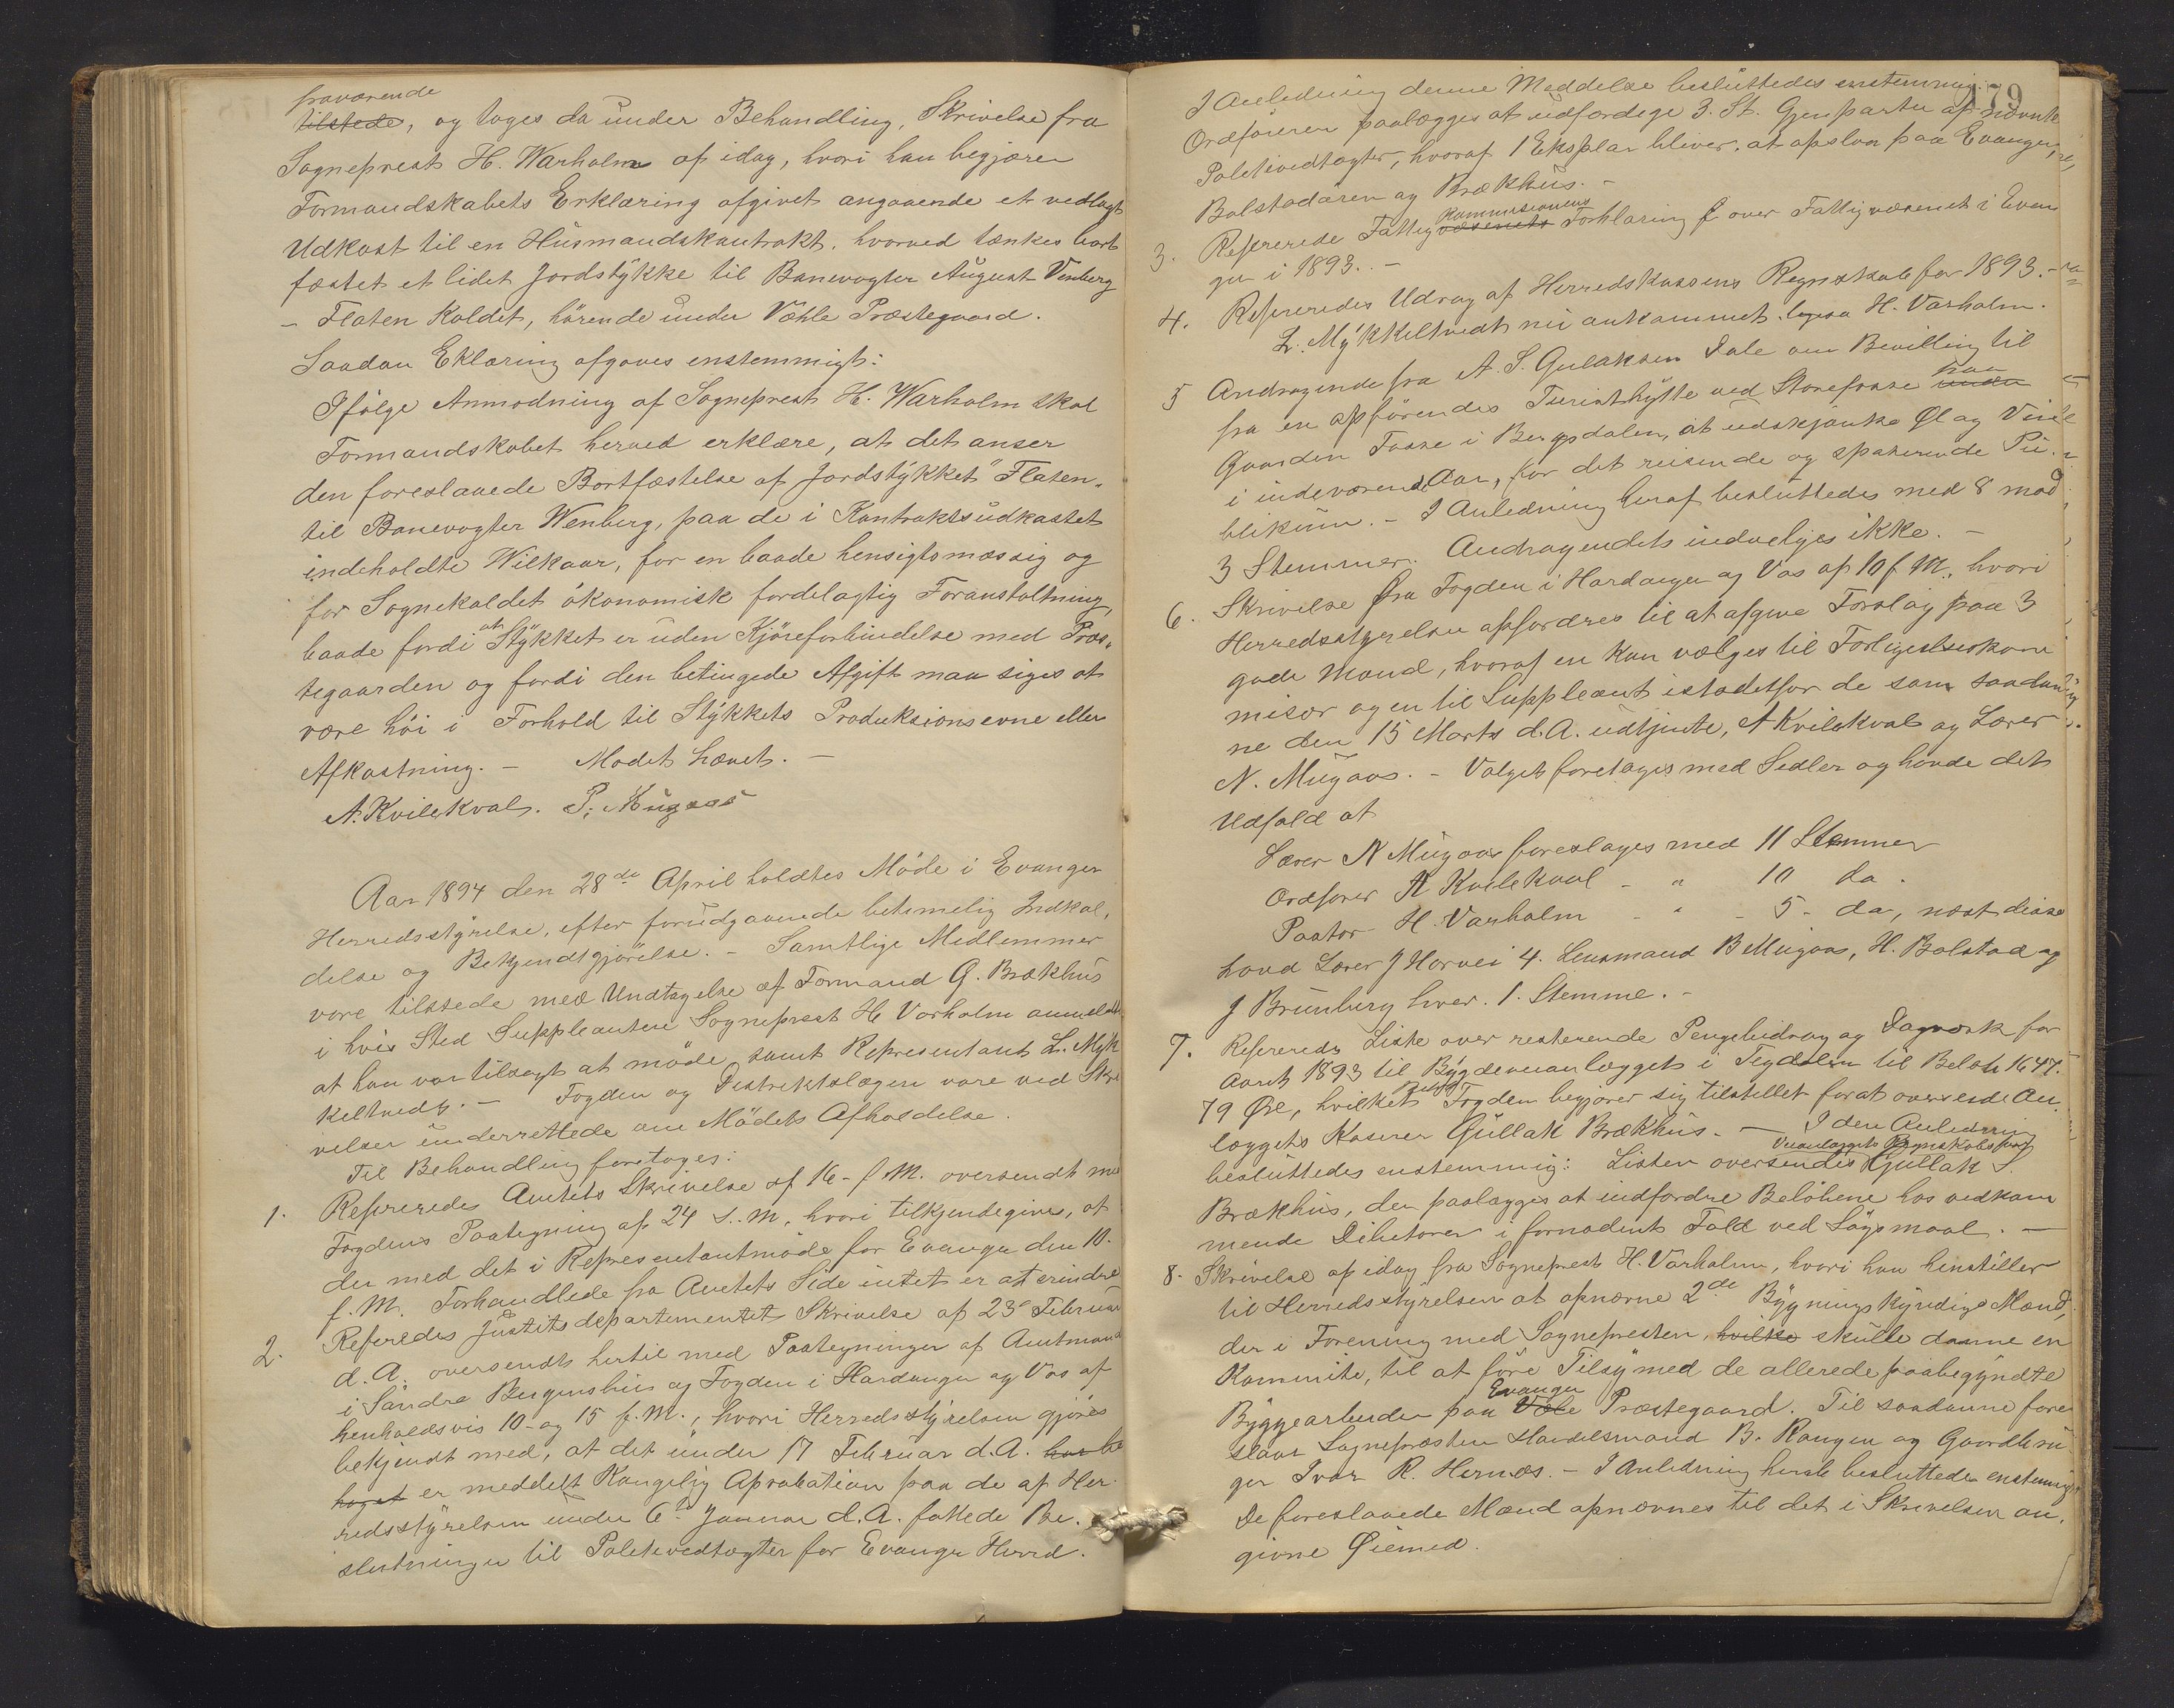 fraværende
tilstede, og toges da under Behandling, Skrivelse fra
Sogneprest H. Warholm af idag, hvori han begjærer
Formandskabets Erklæring afgivet angaaende et vedlagt
Udkast til en Husmandskontrakt, hvorved tænkes bort
fæstet et lidet Jordstykke til Banevogter August Venberg
- Flaten kaldet, hörende under Væhle Præstegaard.
Saadan Eklæring afgaves enstemmigt:
Ifölge Anmodning af Sogneprest H. Warholm skal
Formandskabet herved erklære, at det anser
den foreslaaede Bortfæstelse af Jordstykket "Flaten"
til Banevogter Wenberg, paa de i Kontraktsudkastet
indeholdte Wilkaar, for en baade hensigtsmæssig og
for Sognekaldet ökonomisk fordelagtig Foranstaltning,
baade fordi at Stykket er uden Kjöreforbindelse med Præs-
tegaarden og fordi den betingede Afgift maa siges at
være höi i Forhold til Stykkets Produksionsevne eller
Afkastning. - Mødet hævet. -
A. Kvilekval. P. Mugaas
Aar 1894 den 28de April holdtes Möde i Evanger
Herredsstyrelse, efter forudgaaende betimelig Indkal-
delse og Bekjendtgjörelse. - Samtlige Medlemmer
vare tilstede med Undtagelse af Formand G. Brækhus
i hvis Sted Suppleanten Sogneprest H. Varholm anmeldte
at han var tilsagt at möde, samt Representant L. Myk
keltvedt. - Fogden og Distriktslægen vare ved Skri
velser underrettede om Mödets Afholdelse.
Til Behandling foretages:
1. Refereredes Amtets Skrivelse af 16 - f. M. oversendt med
Fogdens Paategning af 24 s. M, hvori tilkjendegives, at
der med det i Representantmöde for Evanger den 10.
f. M. Forhandlede fra Amtets Side intet er at erindre
2. Referedes Justitsdepartementets Skrivelse af 23de Februar
d. A. oversendt hertil med Paategninger af Amtmand
i Söndre Bergenshus og Fogden i Hardanger og Vos af
henholdsvis 10 - og 15 f. M., hvori Herredsstyrelsen gjöres
bekjendt med, at det under 17 Februar d. A. har be
haget er meddelt Kongelig Aprobation paa de af Her-
redsstyrelsen under 6te Januar d. A. fattede Be-
slutninger til Politivedtægter for Evanger Herred.
179
I Anledning denne Meddelse besluttedes enstemmig:
Ordføreren paalægges at udfærdige 3. St. Gjenparter af nævnte
Politivedtægter, hvoraf 1 Eksplar bliver at opslaa paa Evanger,
Bolstadören og Brækhus. -
3. Refererede Fattigvæsenets Kommissionens Forklaring over Fattigvæsenet i Evan
ger i 1893. -
4. Refereredes Udrag af Herredskassens Regnskab for 1893. -
L. Mykkeltvedt nu ankommet. ligesaa H. Varholm.
5 Andragende fra A. S. Gulaksen Dale om Bevilling til
fra en opförendes Turisthytte ved Storefosse under paa
Gaarden Fosse i Bergsdalen, at udskjænke Øl og Vin
i indeværende Aar, for det reisende og spaserende Pu-
blikum. - I Anledning heraf besluttedes med 8 mod
3 Stemmer. Andragendet indvelges ikke. -
6. Skrivelse fra Fogden i Hardanger og Vos af 10 f. M., hvori
Herredsstyrelsen opfordres til at afgive Forslag paa 3
gode Mænd, hvoraf en kan vælges til Forligelseskom
misær og en til Suppleant istedetfor de som saadan
ne den 15 Marts d. A. udtjente, A Kvilekval og Lærer
N. Mugaas. - Valget foretages med Sedler og havde det
Udfald at
Lærer N Mugaas foreslages med 11 Stemmer
Ordfører A Kvilekval - " 10 do.
Pastor H. Varholm - " - 5 - do, næst disse
havd Lærer J Horvei 4. Lensmand B Mugaas, H. Bolstad og
J Brunberg hver. 1. Stemme. -
7. Refereredes Liste over resterende Pengebidrag og Dagværk for
Aaret 1893 til Bygdeveianlægget i Teigdalen til Beløb 1647.
79 Øre, hvilket Beløb Fogden begjærer sig tilstillet forat oversende An-
læggets Kaserer Gullak Brækhus. - I den Anledning
besluttedes enstemmig: Listen oversendes Veianlæggets Regnskabsfører Gullak S.
Brækhus, der paalægges at indfordre Belöbene hos vedkom
mende Debitorer i fornødent Fald ved Søgsmaal. -
8. Skrivelse af idag fra Sogneprest H. Varholm, hvori han henstiller
til Herredsstyrelsen at opnævne 2de Bygningskyndige Mænd,
der i Forening med Sognepresten, hvilke skulle danne en
Kommite, til at före Tilsyn med de allerede paabegyndte
Byggearbeider paa Væle Evanger Præstegaard. Til saadanne fore
slaar Sognepræsten Handelsmand B. Rangen og Gaardbru
ger Ivar R. Hernæs. - I Anledning herab besluttedes enstemmigt
De foreslaaede Mænd opnævnes til det i Skrivelsen an-
givne Øiemed.